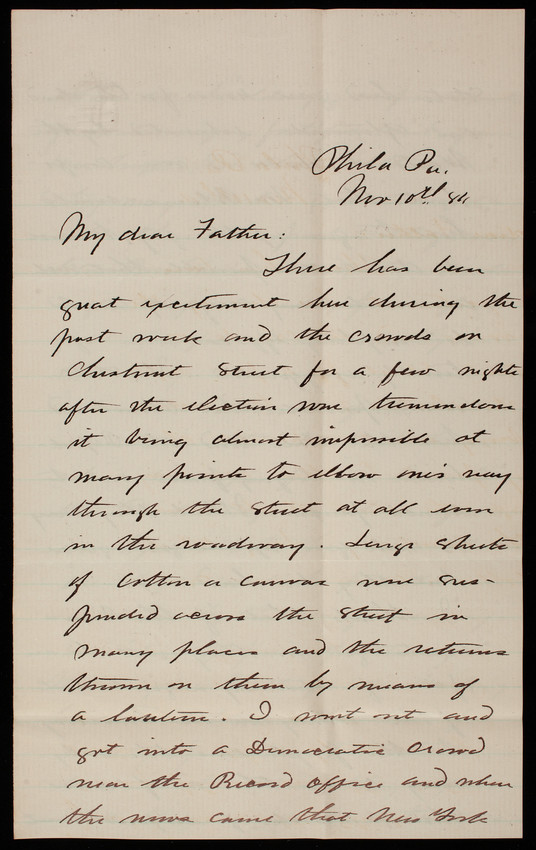 Phila Pa.
Nov 10th 84
My dear Father:
There has been
great excitement here during the
past week and the crowds on
Chestnut Street for a few nights
after the election were tremendous
it being almost impossible at
many points to elbow one's way
through the street at all even
in the roadway. Large sheets
of cotton or canvas were sus-
pended across the street in
many places and the returns
thrown on them by means of
a lantern. I went out and
got into a Democratic crowd
near the Record office and when
the news came that New York